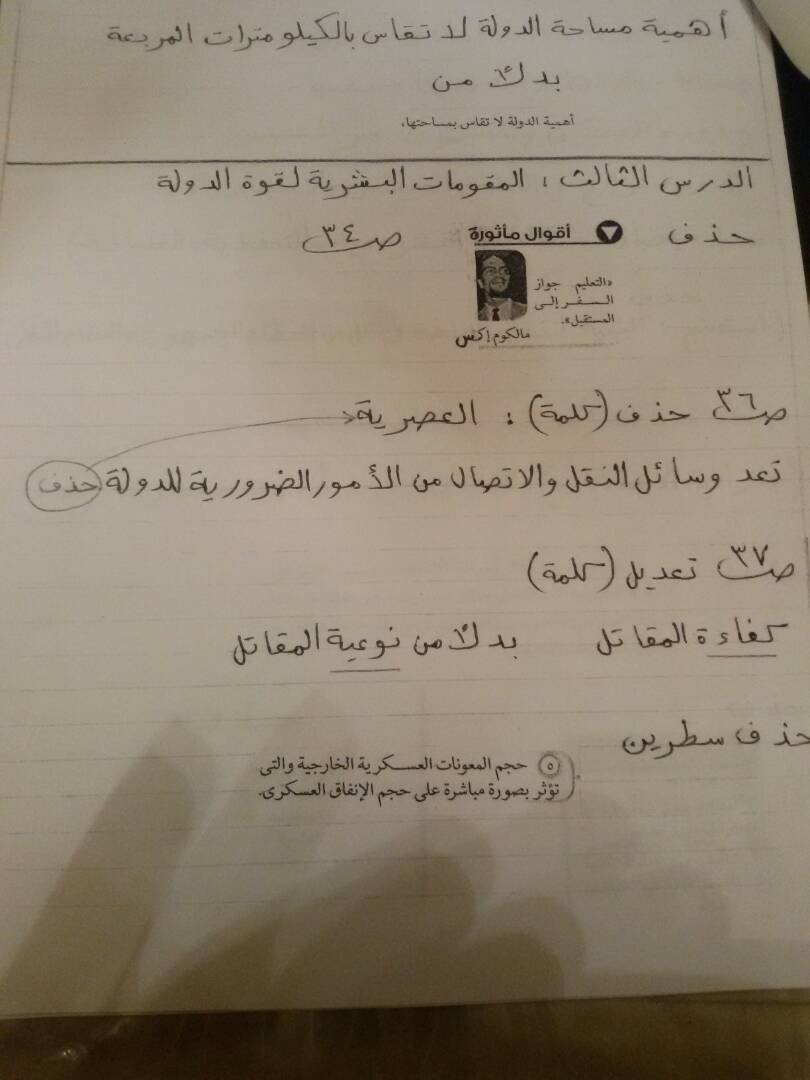 أهمية مساحة الدولة لا تقاس بالكيلو مترات المربعة
بدلاً من
أهمية الدولة لا تقاس بمساحتها.
الدرس الثالث : المقومات البشرية لقوة الدولة
حذف أقوال مأثورة ص ٣٤
«التعليم جواز
السفر إلى
المستقبل».
مالكوم إكس
ص ٣٦ حذف (كلمة) : العصرية
تعد وسائل النقل والاتصال من الأمور الضرورية للدولة حذف
ص ٣٧ تعديل (كلمة)
كفاءة المقاتل بدلاً من نوعية المقاتل
حذف سطرين
٥ حجم المعونات العسكرية الخارجية والتى
تؤثر بصورة مباشرة على حجم الإنفاق العسكرى.